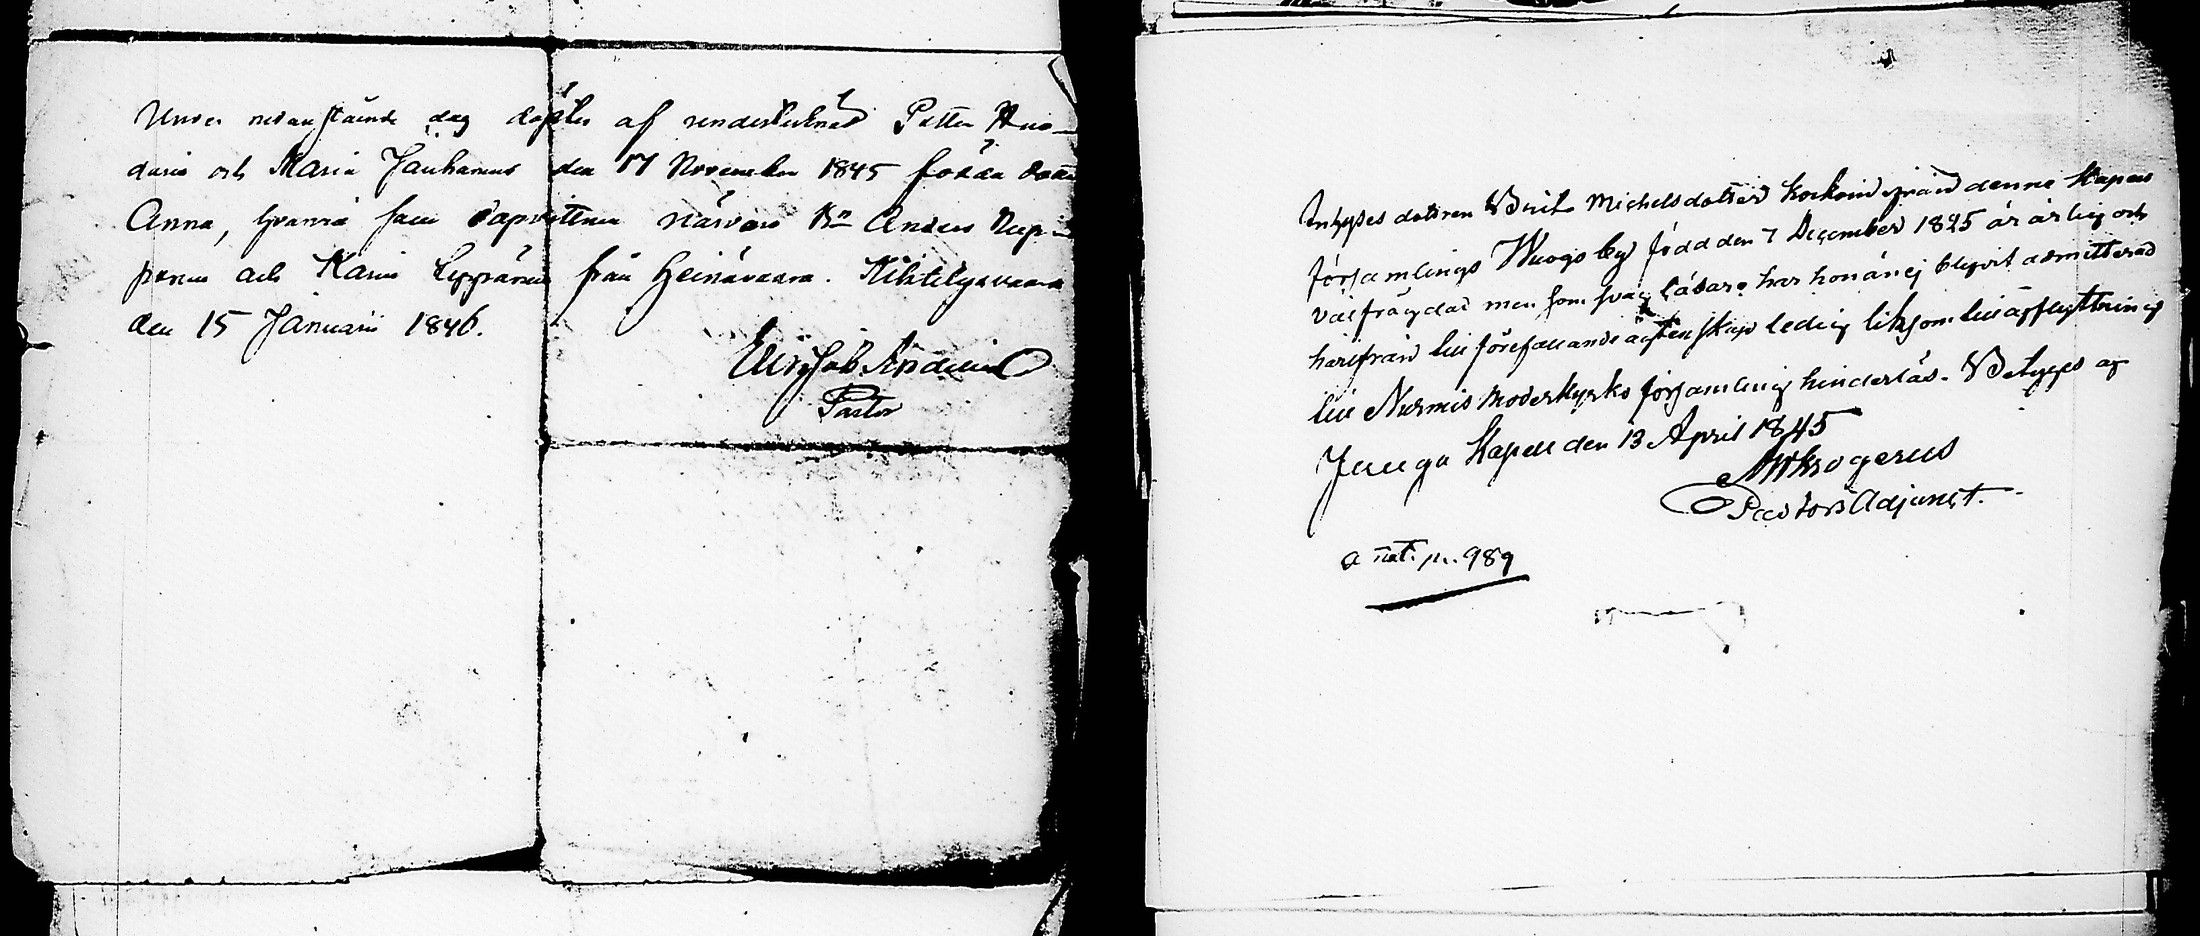 Under nedanstående dag döptes af undertecknad Petter Huo-
daris och Maria Jäuhanens den 17 November 1845 födda dotter
Anna, hvarvid som dopvittnen närvoro Bn Anders Rup-
ponen och Karin Leppänen från Heinävaara. Kihtelysvaara
den 15 Januarii 1846.
Pastor
Inhyses dottren Brita Michelsdotter Korhoin från denne Kapell
församlings Wuogo by född den 7 December 1825 är ärlig och
välfrägdad men som svag läsare har hon än ej blifvit admitterad
härifrån till förefallande äktenskap ledig liksom till afflyttning
till Nurmis moderkyrko församling hinderlös. Betyges af
Juuga Kapell den 13 April 1845
Krogerus
Pastors Adjunct.
a nat. p. 989